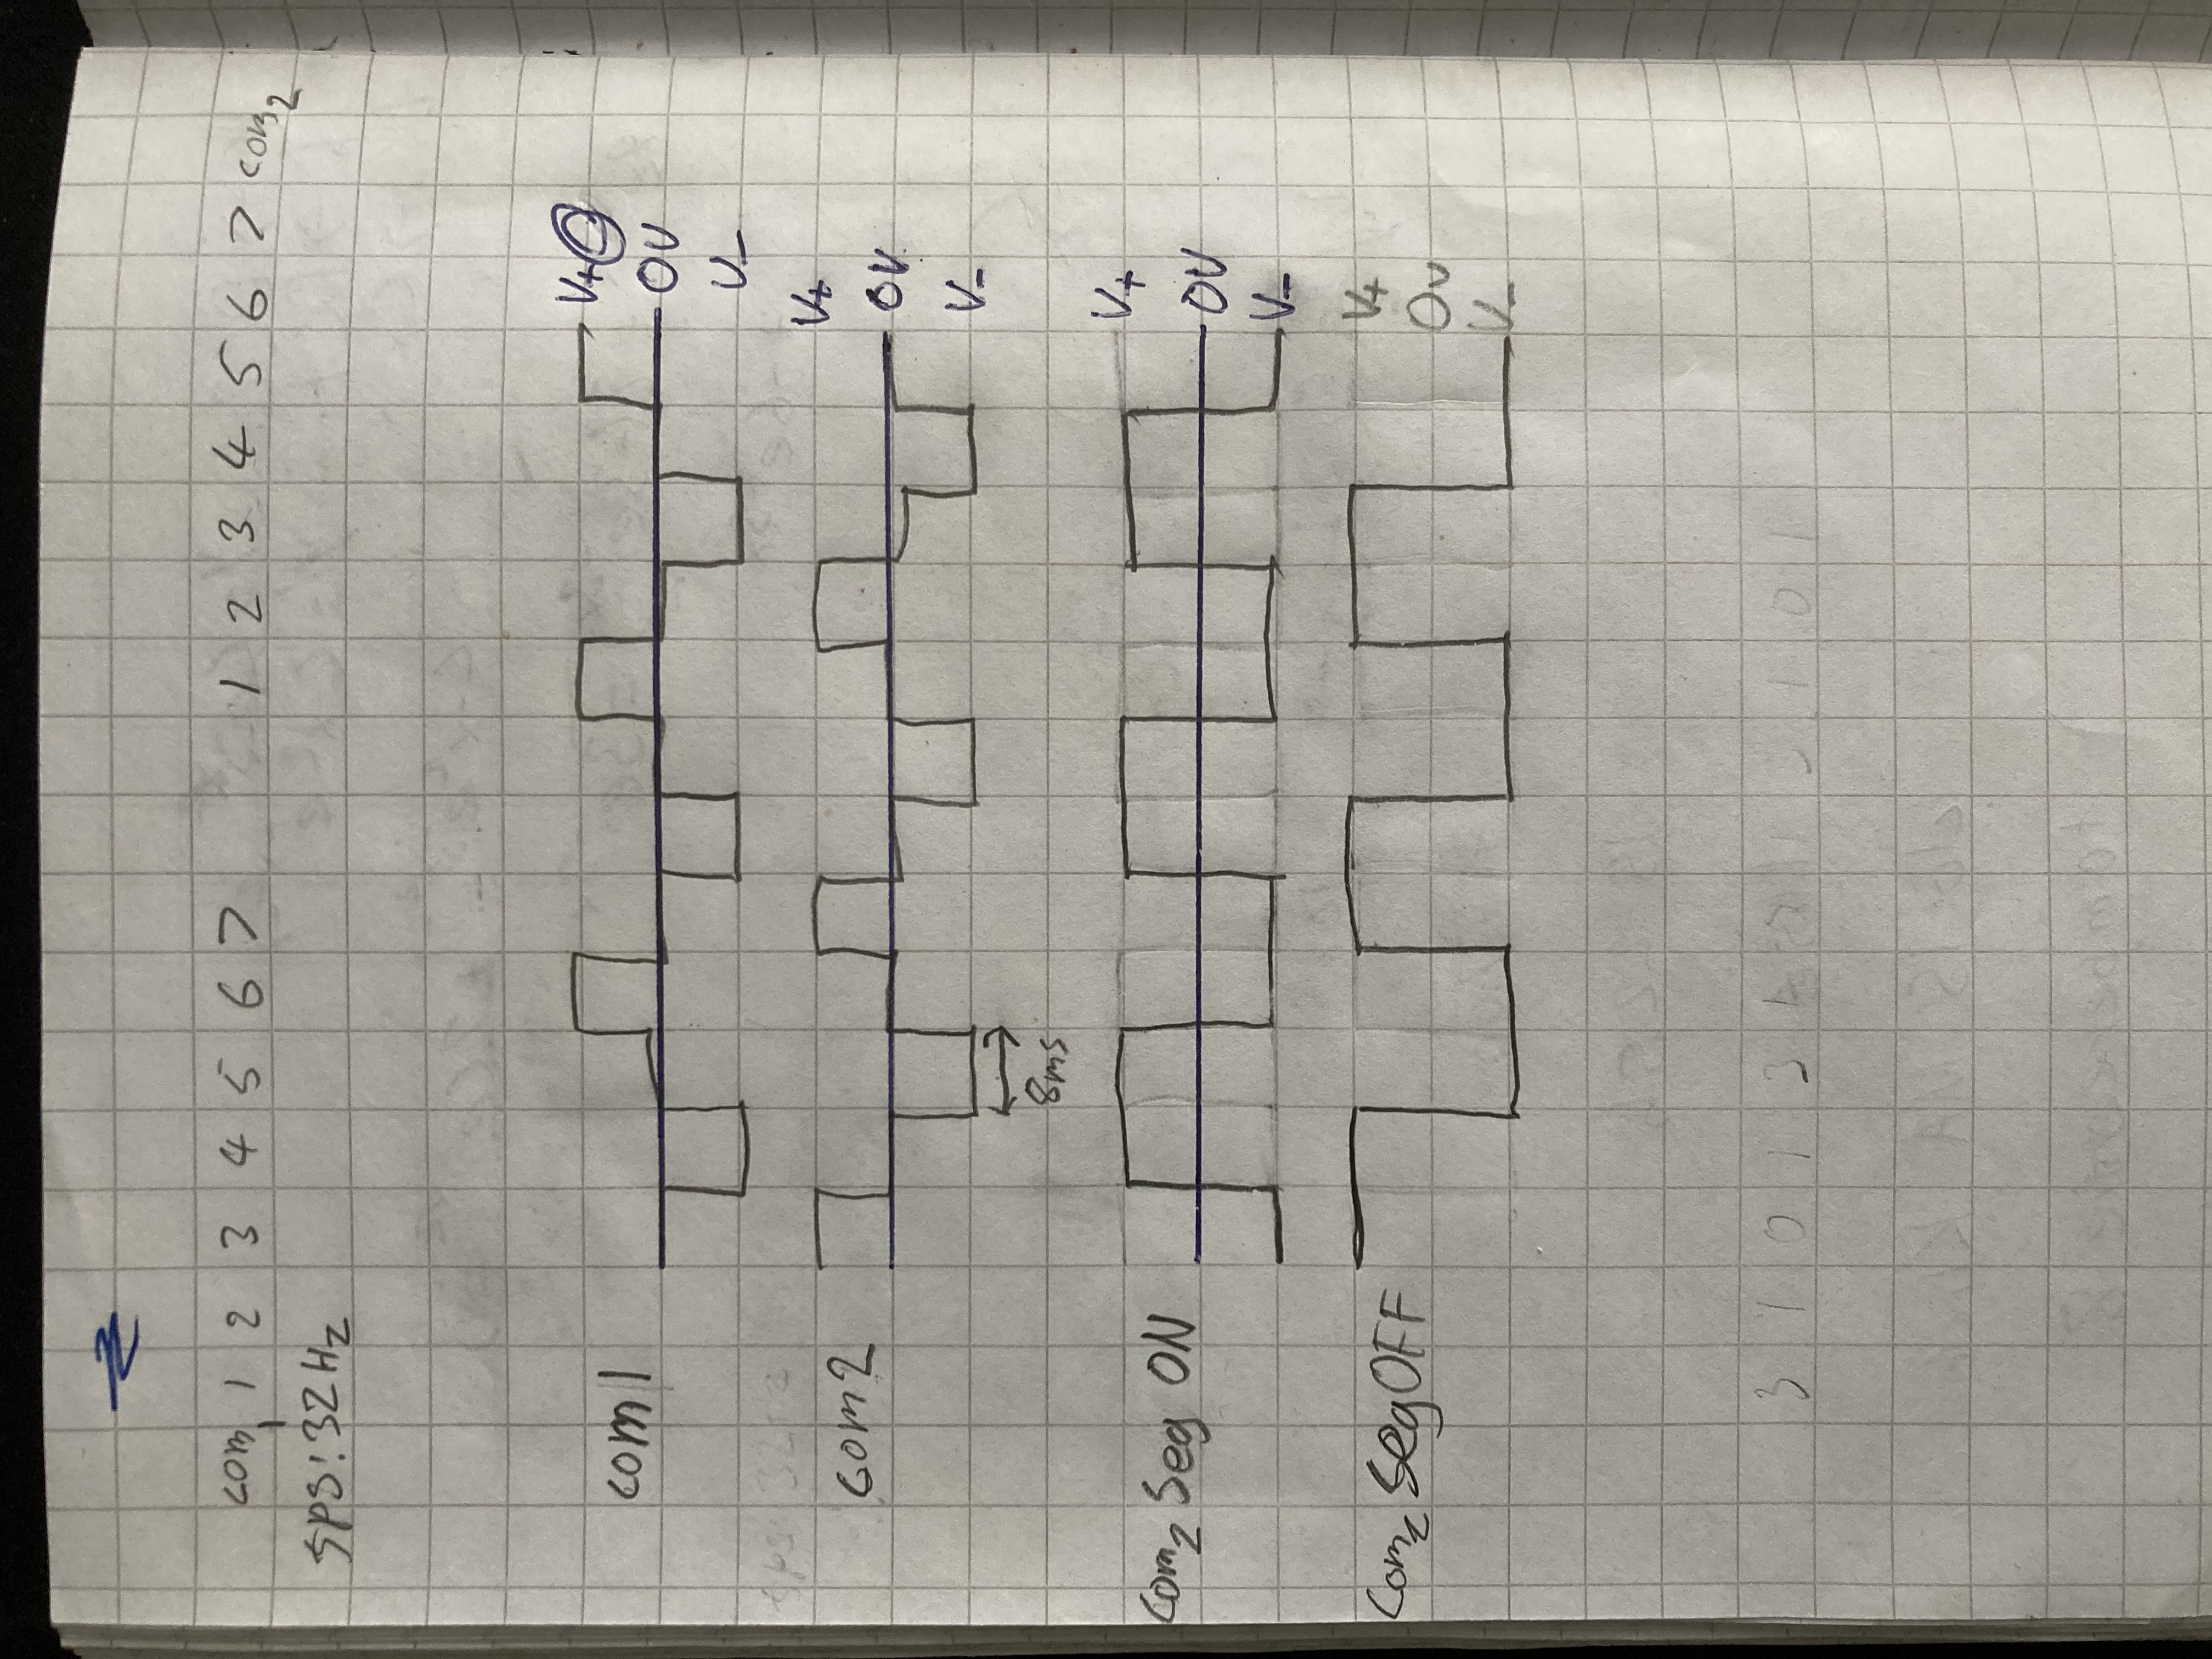 com1 1 2 3 4 5 6 7 1 2 3 4 5 6 7 com2
sps: 32Hz
com1 V+
0V
V-
com2 V+
0V
V-
8ms
com2 Seg ON V+
0V
V-
com2 Seg OFF V+
0V
V-